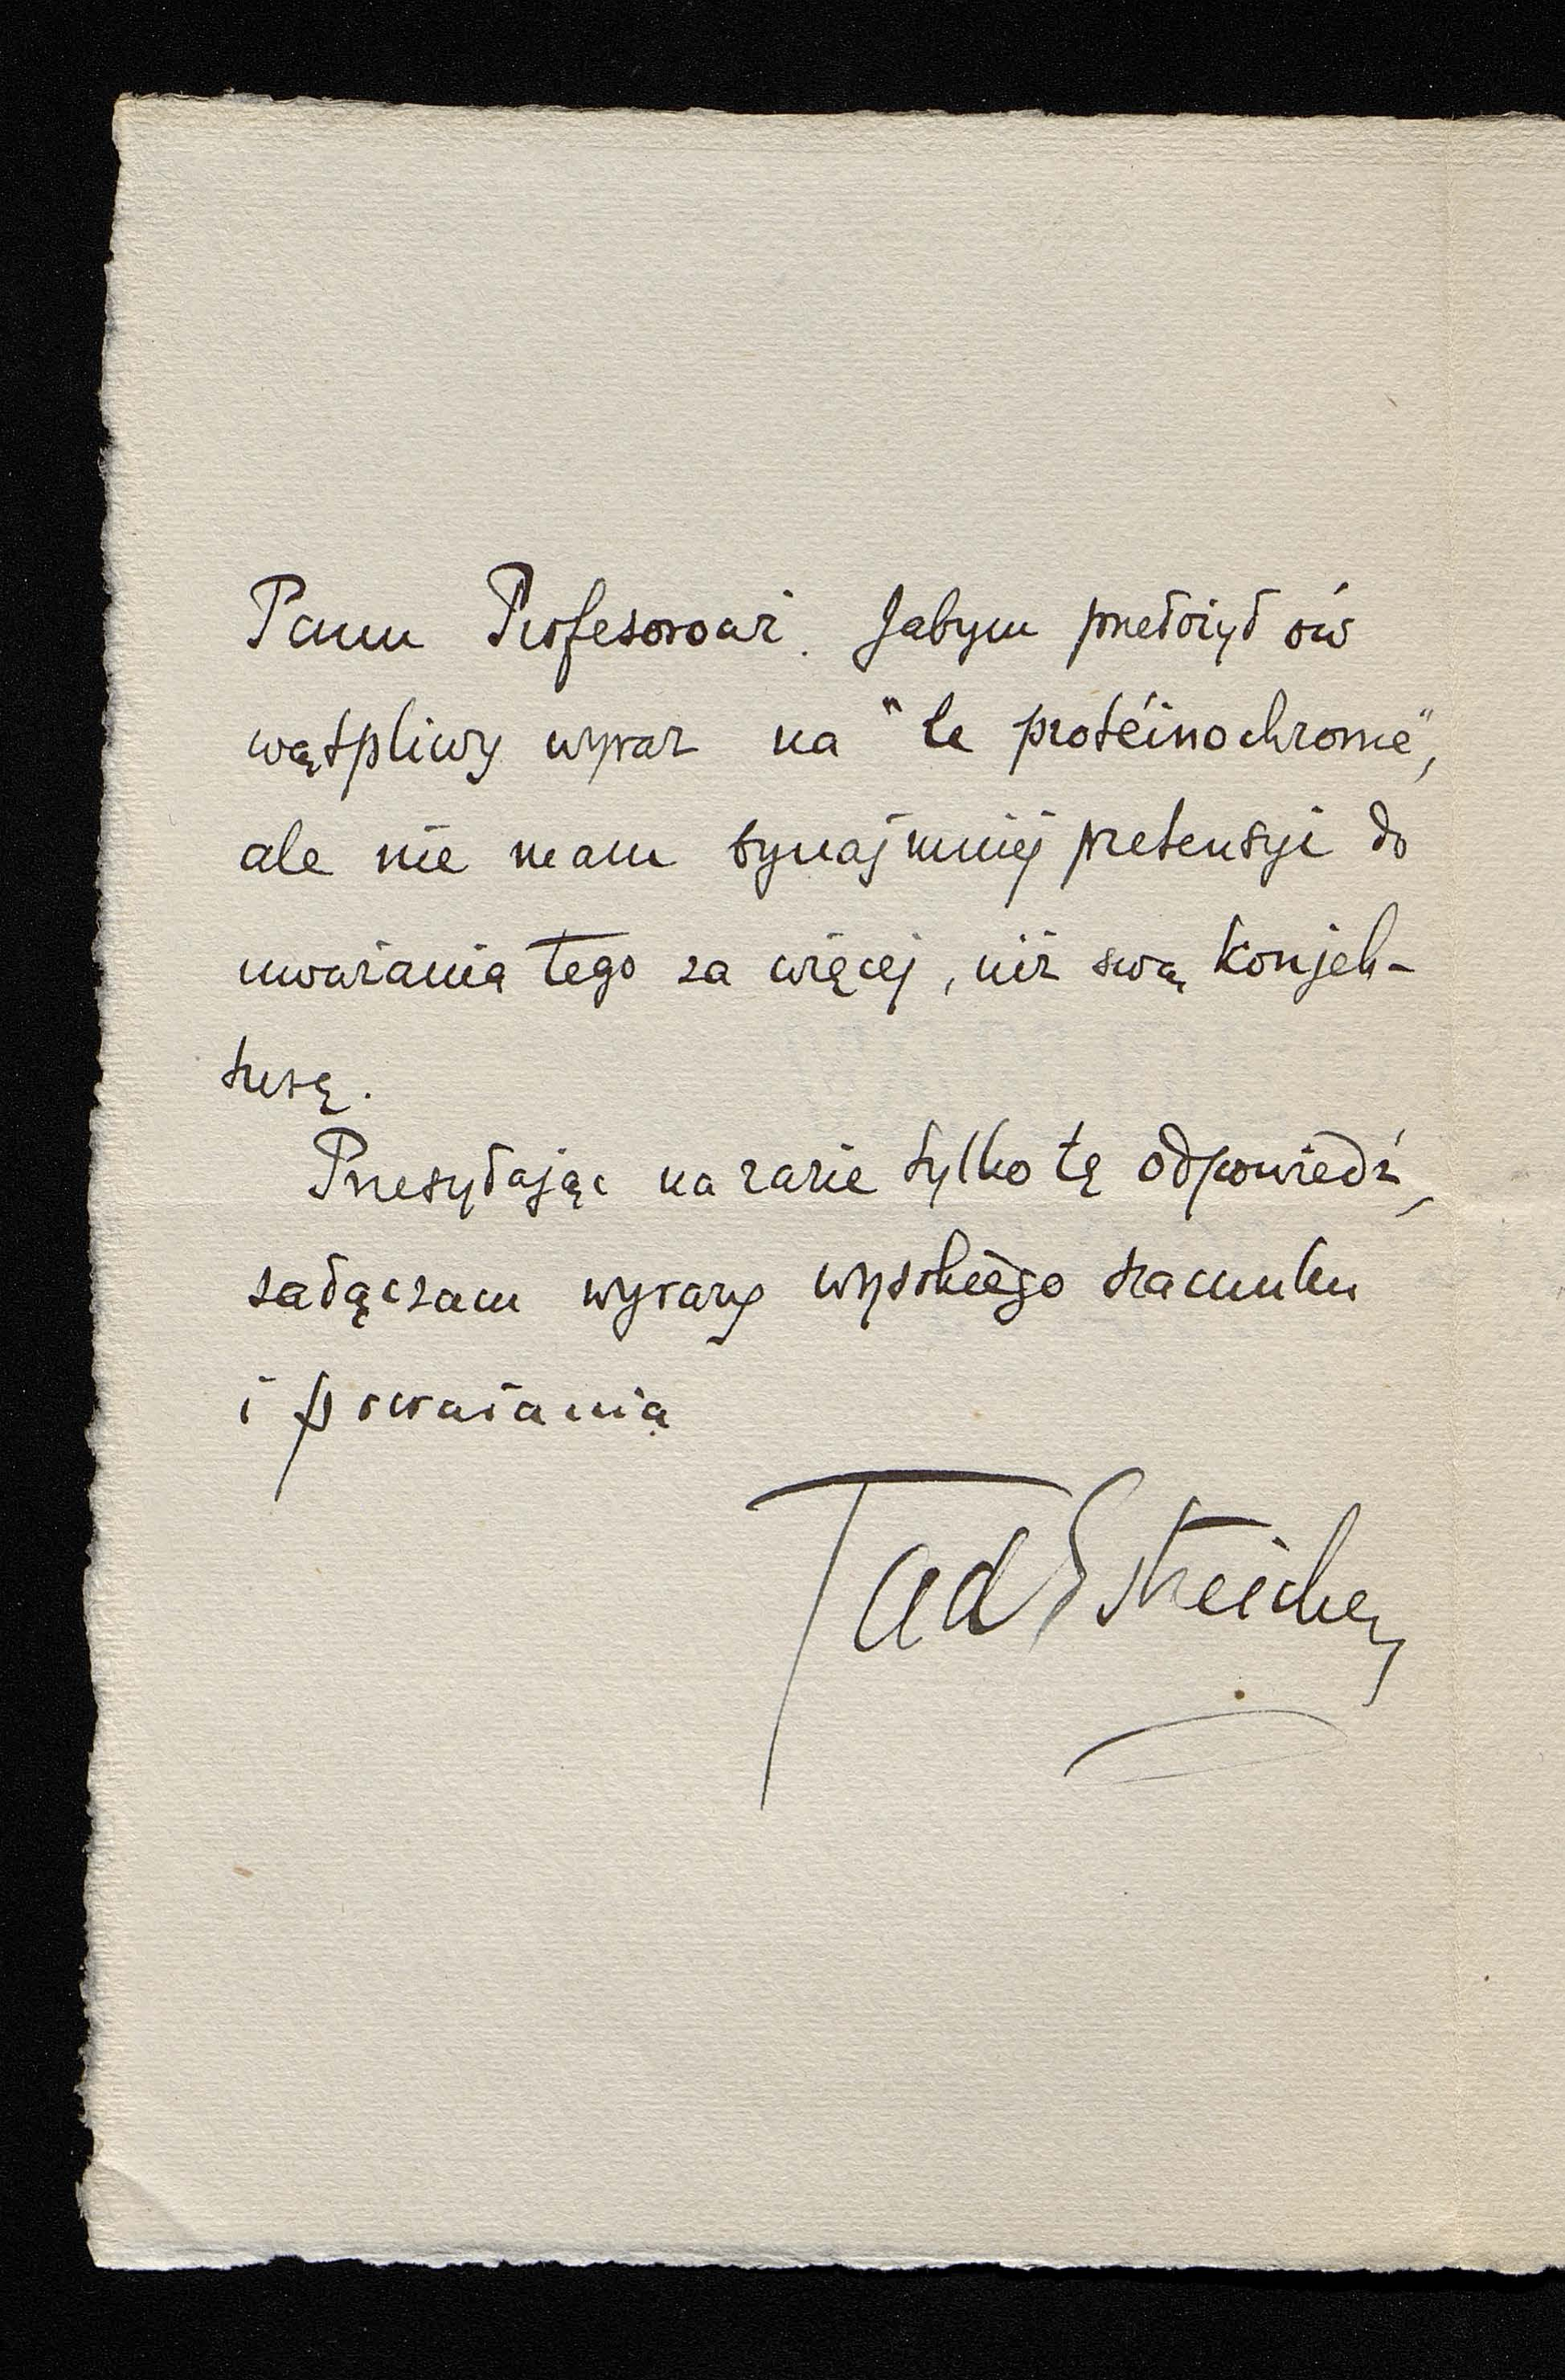 Panu Profesorowi. Jabym przełożył ów
wątpliwy wyraz na "le protéinochrome",
ale nie mam bynajmniej pretensyi do
uważania tego za więcej, niż swą konjek-
turę.
Przesyłając na razie tylko tę odpowiedź,
załączam wyrazy wysokiego szacunku
i poważania
Tad Estreicher